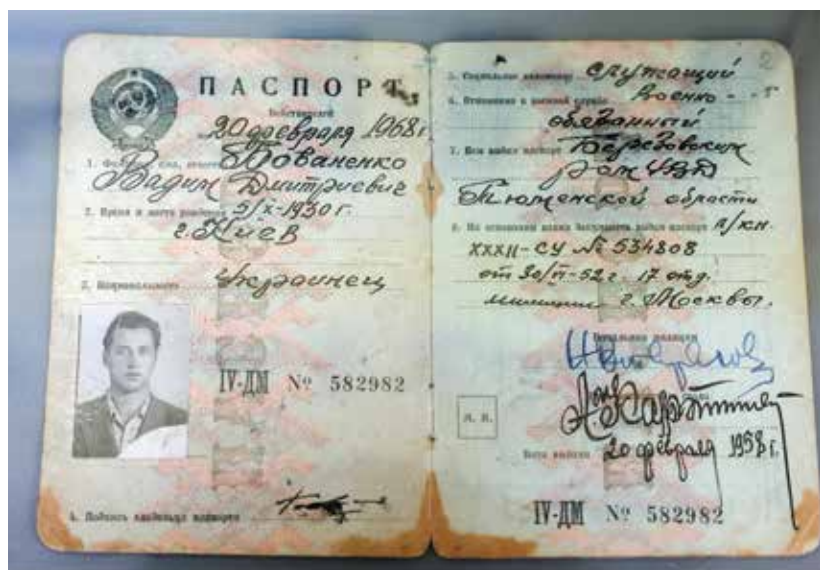 ПАСПОРТ
Действителен
по 20 февраля 1968 г.
1. Фамилия, имя, отчество Бованенко
Вадим Дмитриевич
2. Время и место рождения 5/X-1930 г.
г. Киев
3. Национальность Украинец
IV-ДМ № 582982
4. Подпись владельца паспорта
2
5. Социальное положение служащий
6. Отношение к военной службе Военно-
обязанный
7. Кем выдан паспорт Березовским
РОМ УВД
Тюменской области
8. На основании каких документов выдан паспорт п/кн.
XXXII-СУ № 534808
от 30/VI-52 г. 17 отд.
милиции г. Москвы.
Начальник милиции
М. П.
Дата выдачи 20 февраля 1958 г.
IV-ДМ № 582982